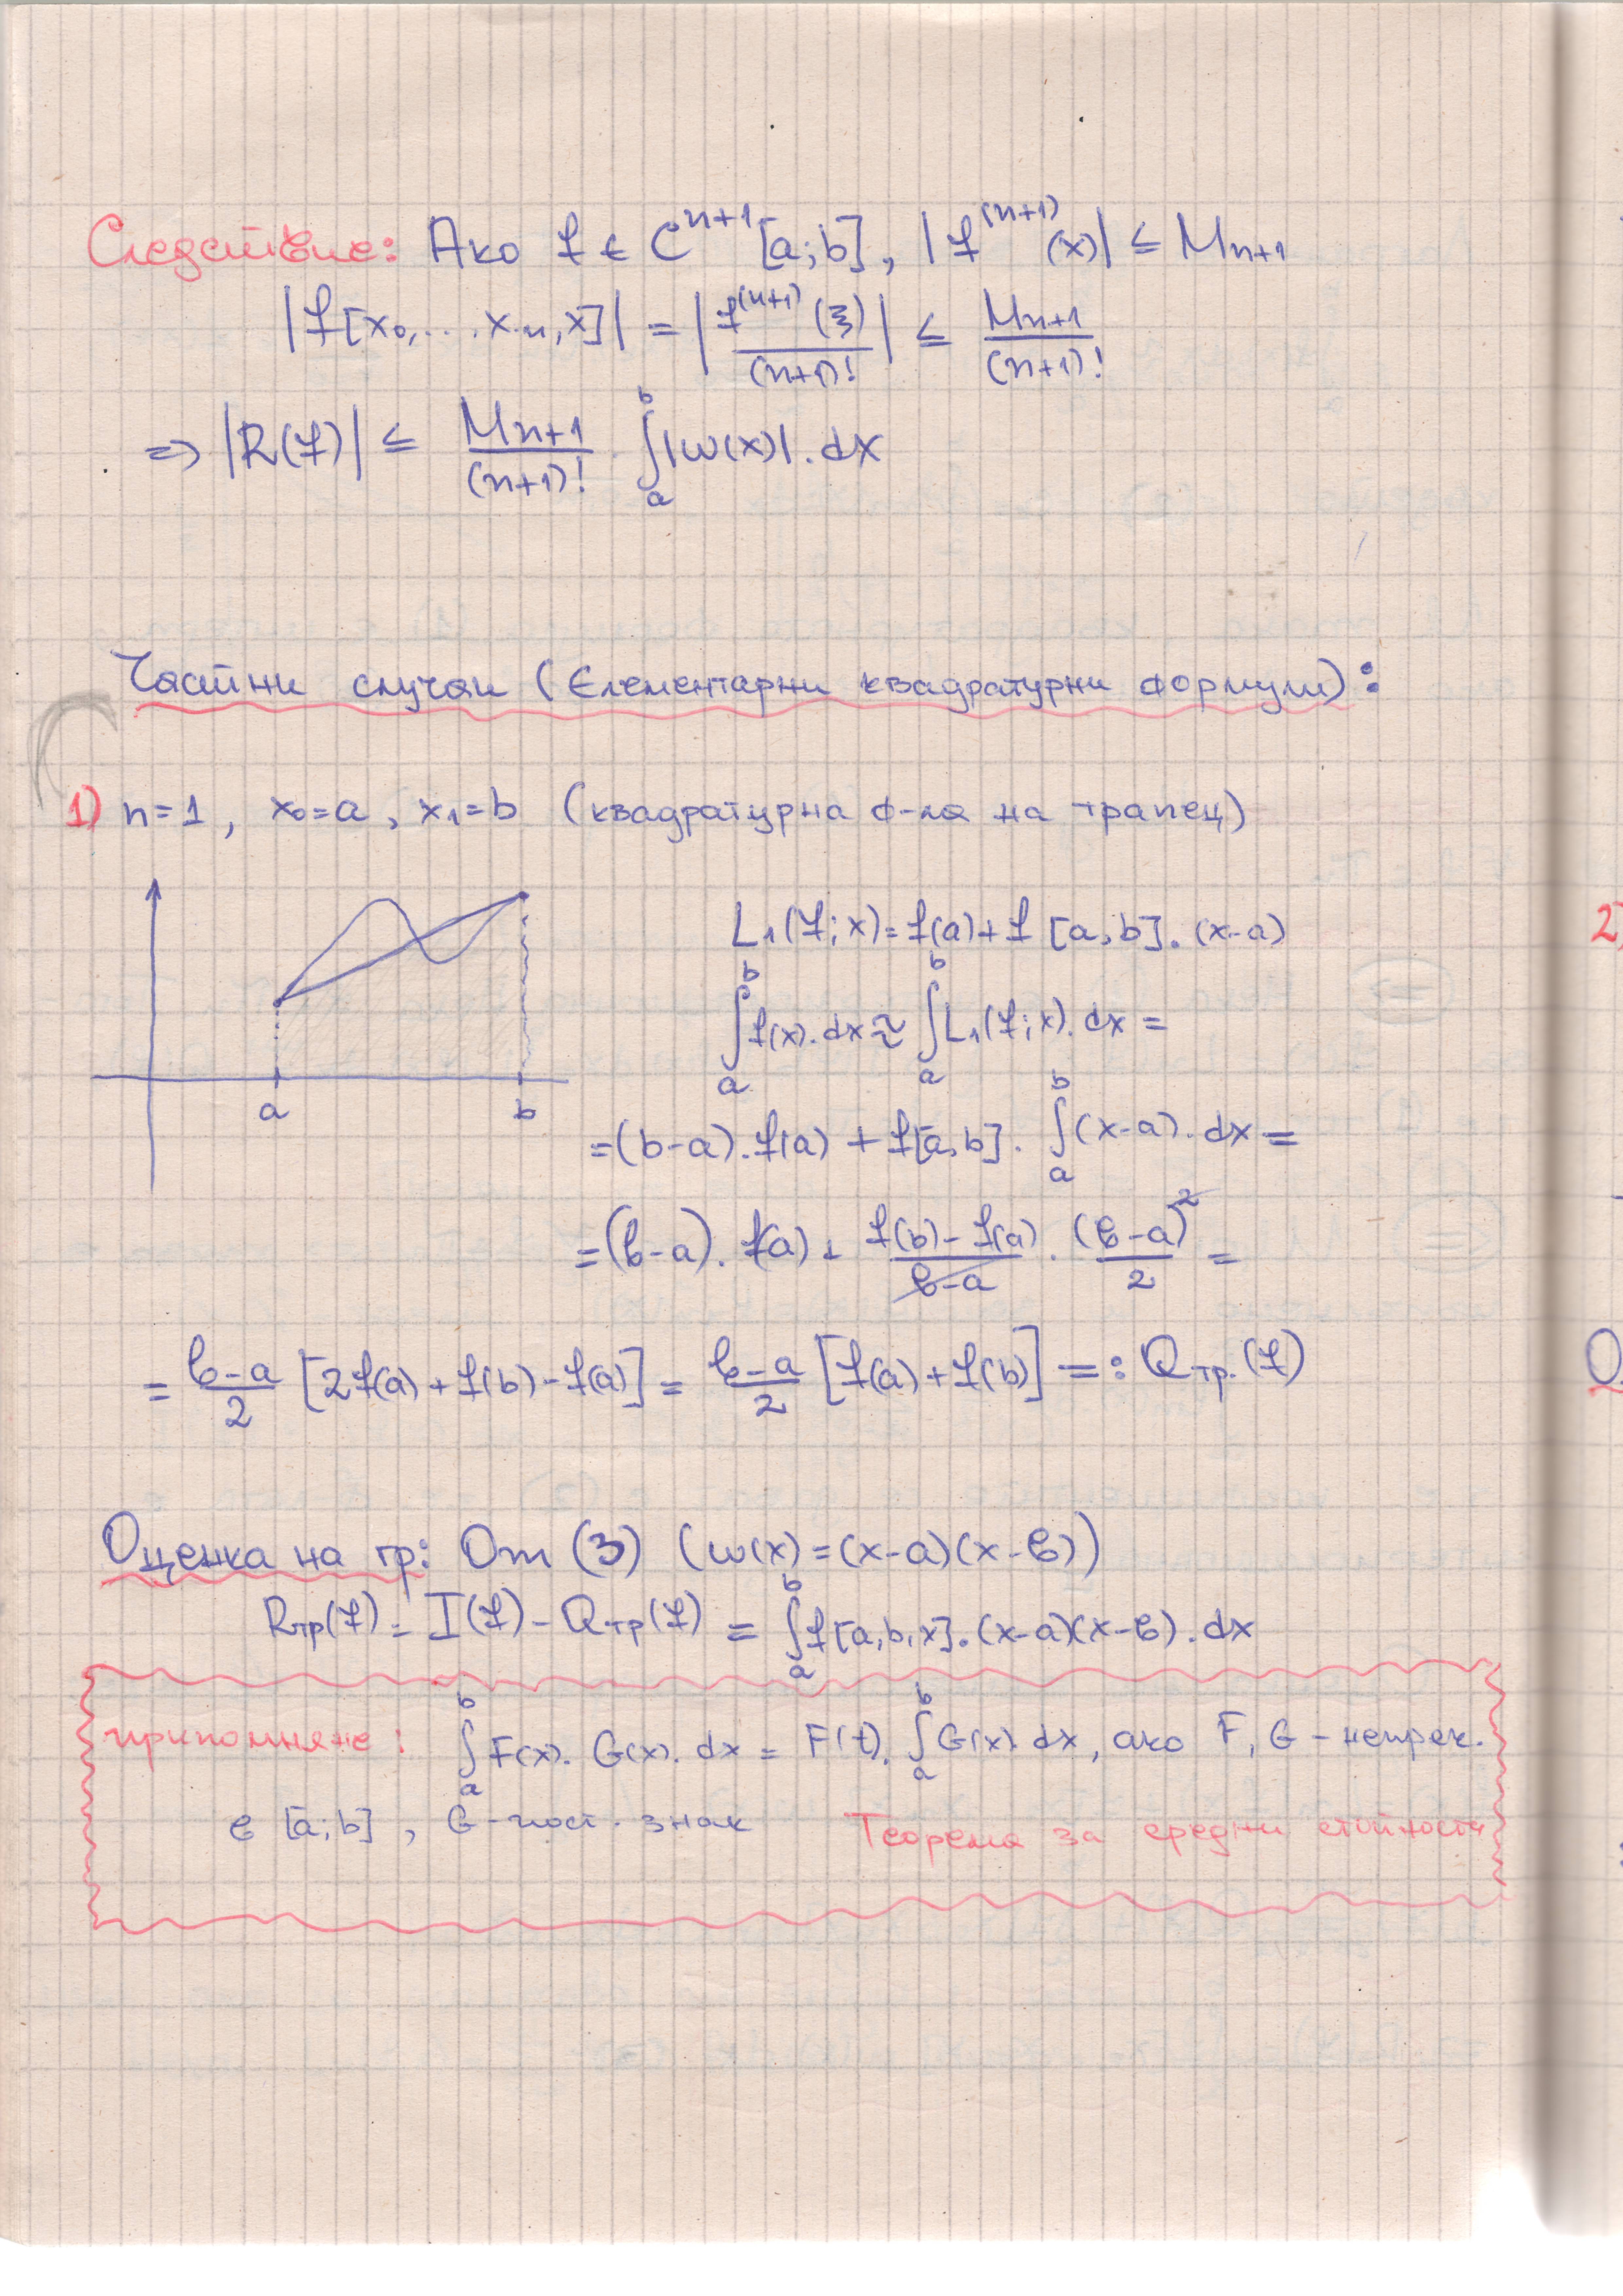 Следствие: Ако f ∈ C^{n+1}[a;b], |f^{(n+1)}(x)| ≤ M_{n+1}
|f[x_0,...,x_n,x]| = |f^{(n+1)}(ξ)/(n+1)!| ≤ M_{n+1}/(n+1)!
=> |R(f)| ≤ M_{n+1}/(n+1)! . ∫_a^b |ω(x)|.dx
Частни случаи (Елементарни квадратурни формули):
1) n=1, x_0=a, x_1=b (квадратурна ф-ла на трапец)
L_1(f;x)=f(a)+f[a,b].(x-a)
∫_a^b f(x).dx ≈ ∫_a^b L_1(f;x).dx =
a b
=(b-a).f(a) + f[a,b]. ∫_a^b (x-a).dx =
=(b-a).f(a) + (f(b)-f(a))/(b-a) . (b-a)^2/2 =
= (b-a)/2 [2f(a)+f(b)-f(a)] = (b-a)/2 [f(a)+f(b)] =: Q_{тр.}(f)
Оценка на гр: От (3) (ω(x)=(x-a)(x-b))
R_{тр}(f) = I(f)-Q_{тр}(f) = ∫_a^b f[a,b,x].(x-a)(x-b).dx
припомняне: ∫_a^b F(x).G(x).dx = F(t). ∫_a^b G(x) dx, ако F, G - непрек.
в [a;b], G-пост. знак Теорема за средни стойности
2)